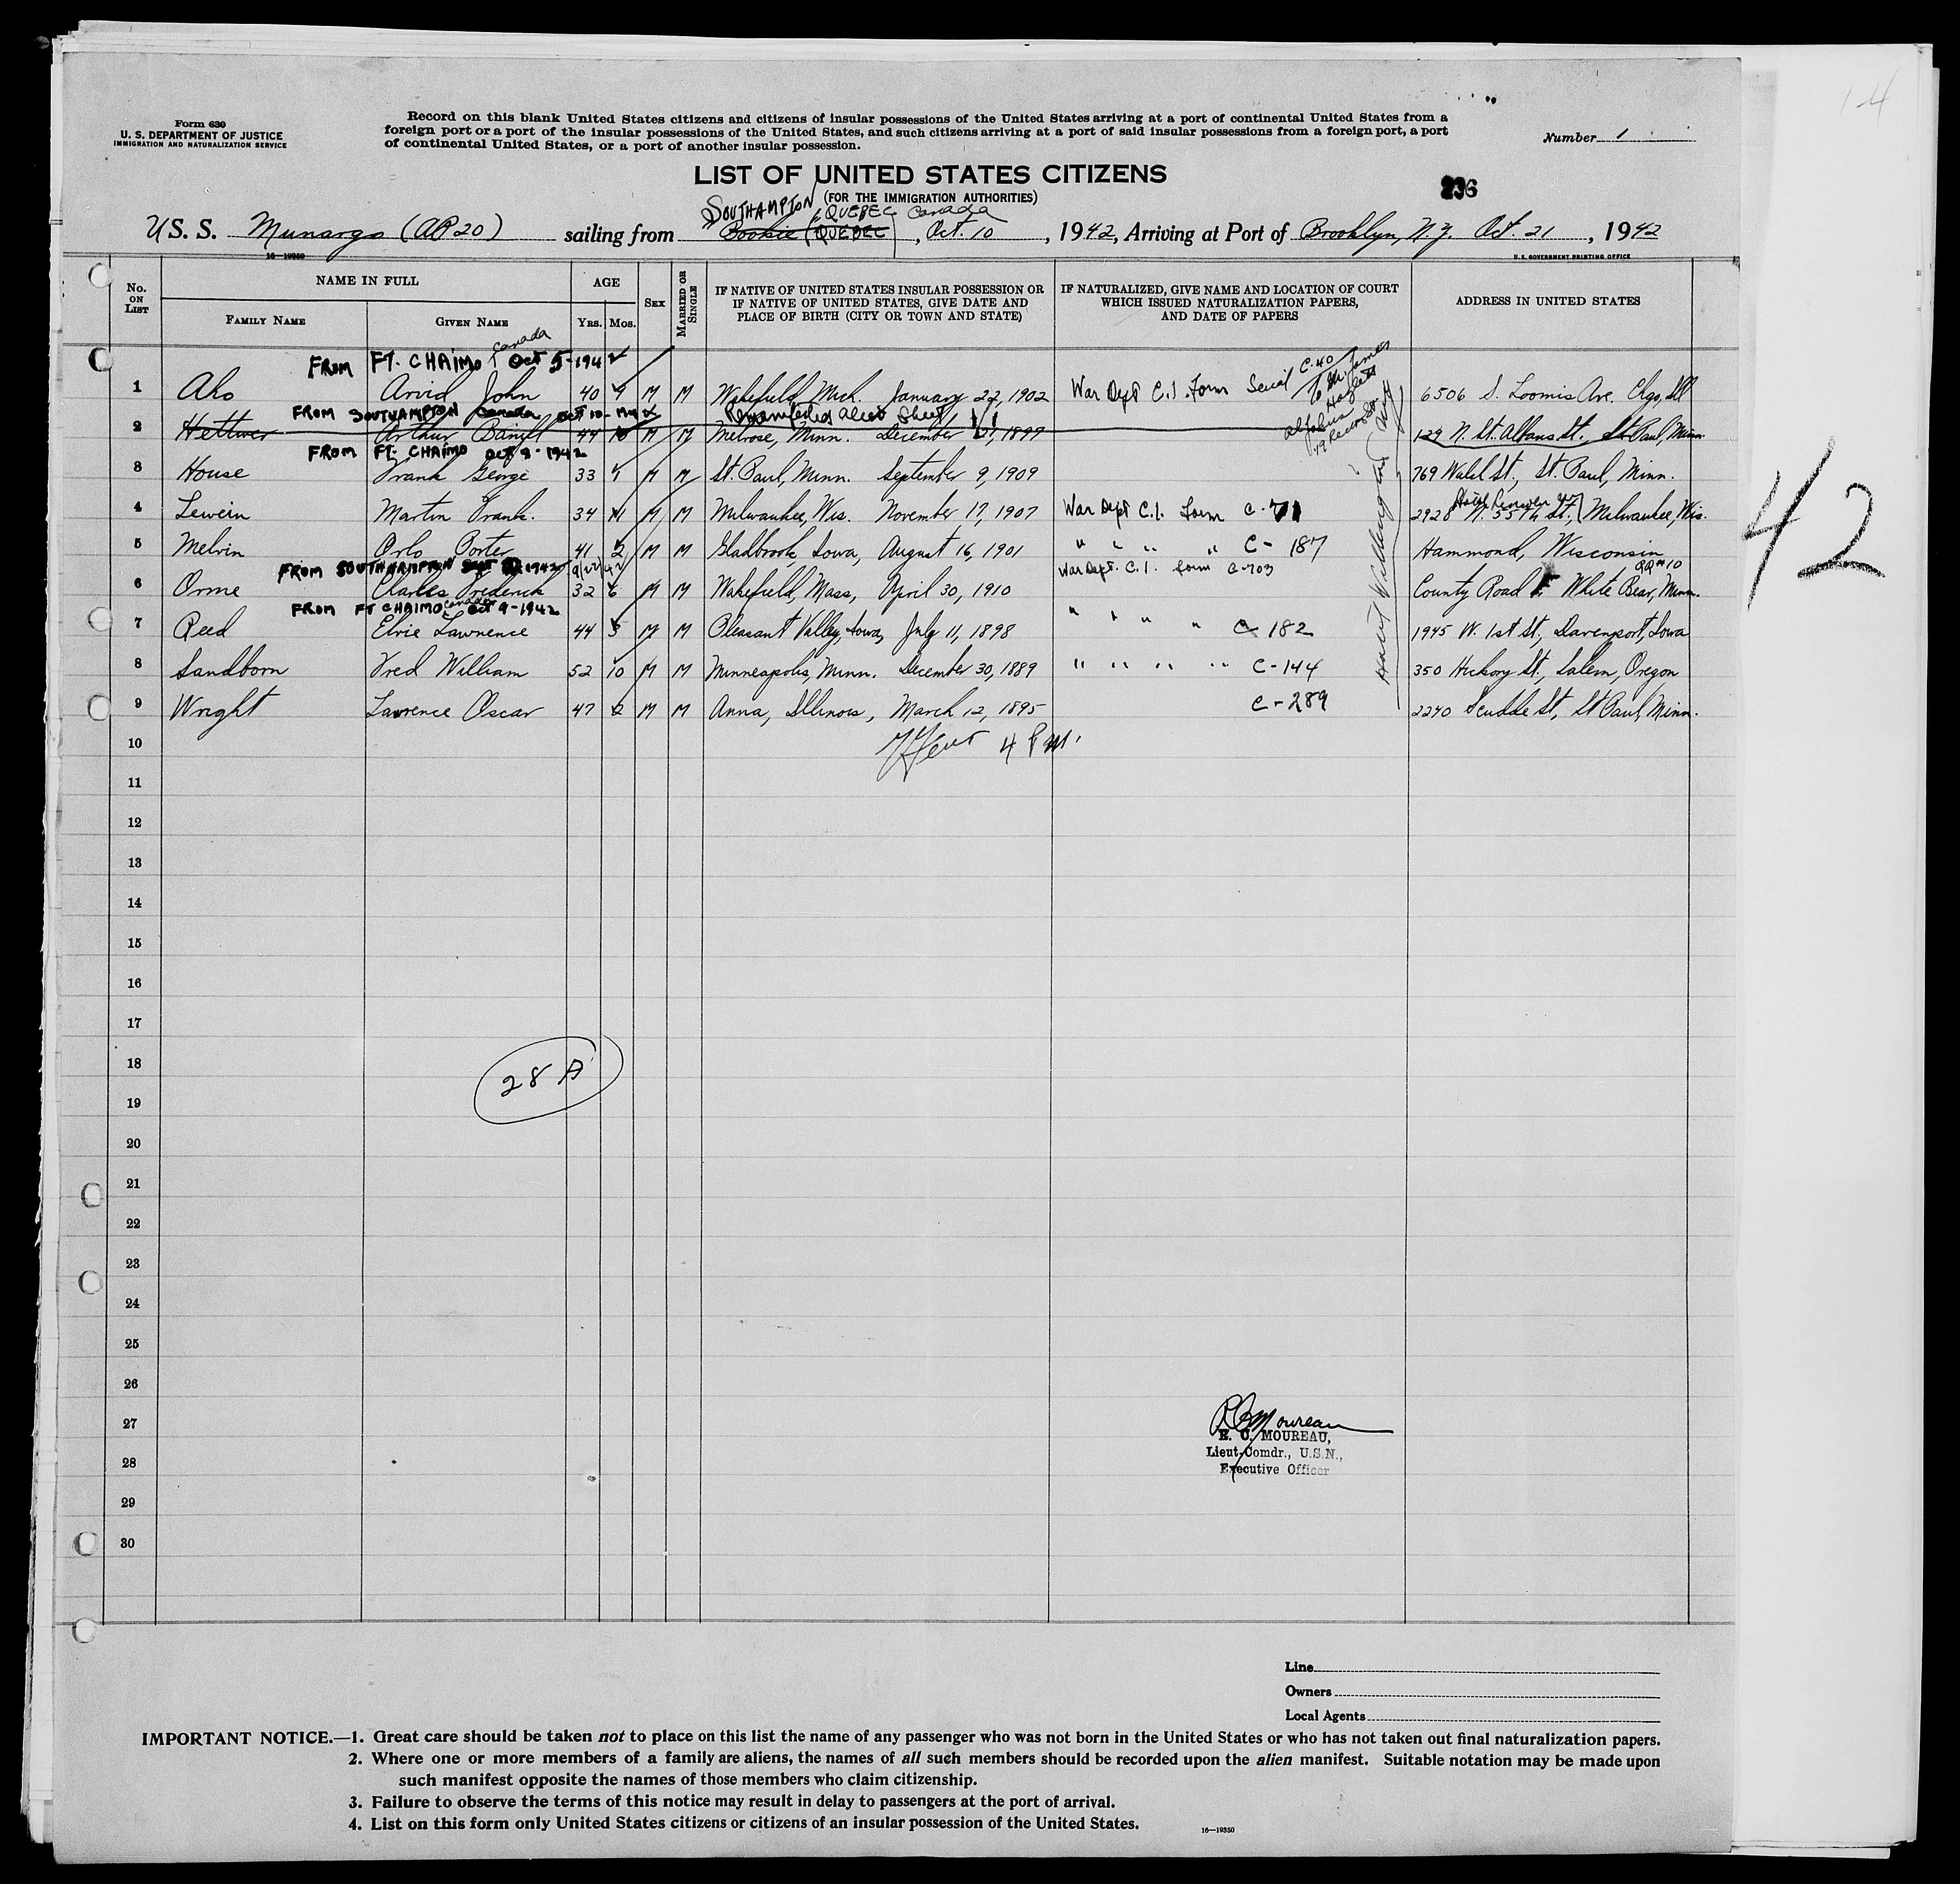 Form 630
U. S. DEPARTMENT OF JUSTICE
IMMIGRATION AND NATURALIZATION SERVICE
Record on this blank United States citizens and citizens of insular possessions of the United States arriving at a port of continental United States from a
foreign port or a port of the insular possessions of the United States, and such citizens arriving at a port of said insular possessions from a foreign port, a port
of continental United States, or a port of another insular possession.
Number 1
LIST OF UNITED STATES CITIZENS
(FOR THE IMMIGRATION AUTHORITIES)
236
SOUTHAMPTON QUEBEC Canada
U.S. S. Munargo (AP 20) sailing from (QUEBEC), Oct. 10, 1942, Arriving at Port of Brooklyn, N.Y. Oct. 21, 1942
16—19350
U. S. GOVERNMENT PRINTING OFFICE
No. ON LIST
NAME IN FULL
FAMILY NAME
GIVEN NAME
AGE
YRS.
MOS.
SEX
MARRIED OR SINGLE
IF NATIVE OF UNITED STATES INSULAR POSSESSION OR
IF NATIVE OF UNITED STATES, GIVE DATE AND
PLACE OF BIRTH (CITY OR TOWN AND STATE)
IF NATURALIZED, GIVE NAME AND LOCATION OF COURT
WHICH ISSUED NATURALIZATION PAPERS,
AND DATE OF PAPERS
ADDRESS IN UNITED STATES
FROM FT. CHAIMO Canada Oct 5-1942
1 Aho Arvid John 40 9 M M Wakefield, Mich. January 22, 1902 War Dept C.I. Form Serial C-40 6506 S. Loomis Ave. Chgo, Ill
FROM SOUTHAMPTON Canada Oct 10-1942 Alien Sheet
2 Hettwer Arthur 44 10 M M Melrose, Minn. December 21, 1897 129 N. St. Albans St. St. Paul, Minn.
FROM FT. CHAIMO Oct 9-1942
3 House Frank George 33 1 M M St. Paul, Minn. September 9, 1909 769 Wald St., St. Paul, Minn.
4 Lewein Martin Frank. 34 11 M M Milwaukee, Wis. November 17, 1907 War Dept C.I. Form C-71 2928 N. 55th St., Milwaukee, Wis.
5 Melvin Orlo Porter 41 2 M M Gladbrook, Iowa, August 16, 1901 " " " " C- 187 Hammond, Wisconsin
FROM SOUTHAMPTON 1942 9/22/42 War Dept. C.I. form C-703 RR#10
6 Orme Charles Frederick 32 6 M M Wakefield, Mass, April 30, 1910 County Road F White Bear, Minn.
FROM FT CHAIMO Canada Oct 9-1942
7 Reed Elvie Lawrence 44 3 M M Pleasant Valley, Iowa, July 11, 1898 " " " " C- 182 1945 W. 1st St., Davenport, Iowa
8 Sandborn Fred William 52 10 M M Minneapolis, Minn. December 30, 1889 " " " " C-144 350 Hickory St., Salem, Oregon
9 Wright Lawrence Oscar 47 2 M M Anna, Illinois, March 12, 1895 C-289 2240 Scudde St, St Paul, Minn.
10
4 P.M.
11
12
13
14
15
16
17
18
28 A
19
20
21
22
23
24
25
26
27
28
29
30
R C Moureau
R. C. MOUREAU,
Lieut-Comdr., U.S.N.,
Executive Officer
42
Line
Owners
Local Agents
IMPORTANT NOTICE.—1. Great care should be taken not to place on this list the name of any passenger who was not born in the United States or who has not taken out final naturalization papers.
2. Where one or more members of a family are aliens, the names of all such members should be recorded upon the alien manifest. Suitable notation may be made upon
such manifest opposite the names of those members who claim citizenship.
3. Failure to observe the terms of this notice may result in delay to passengers at the port of arrival.
4. List on this form only United States citizens or citizens of an insular possession of the United States.
16—19350